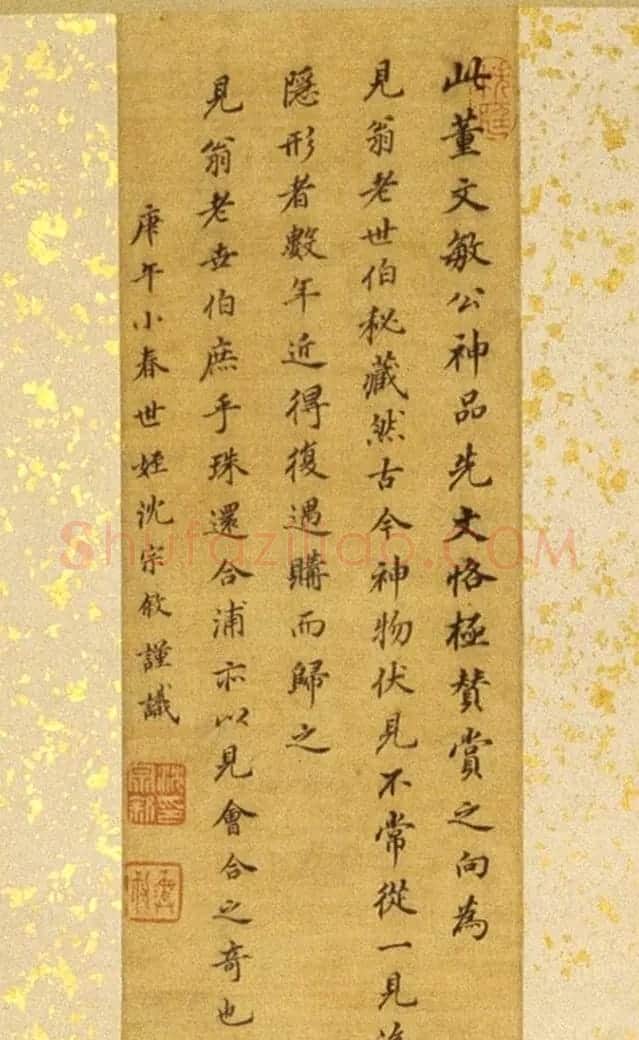 此董文敏公神品先文恪極賛賞之向為
見翁老世伯秘藏然古今神物伏見不常從一見後
隱形者數年近得復遇購而歸之
見翁老世伯庶乎珠還合浦亦以見會合之奇也
庚午小春世姪沈宗敘謹議
Shufaziliao.COM